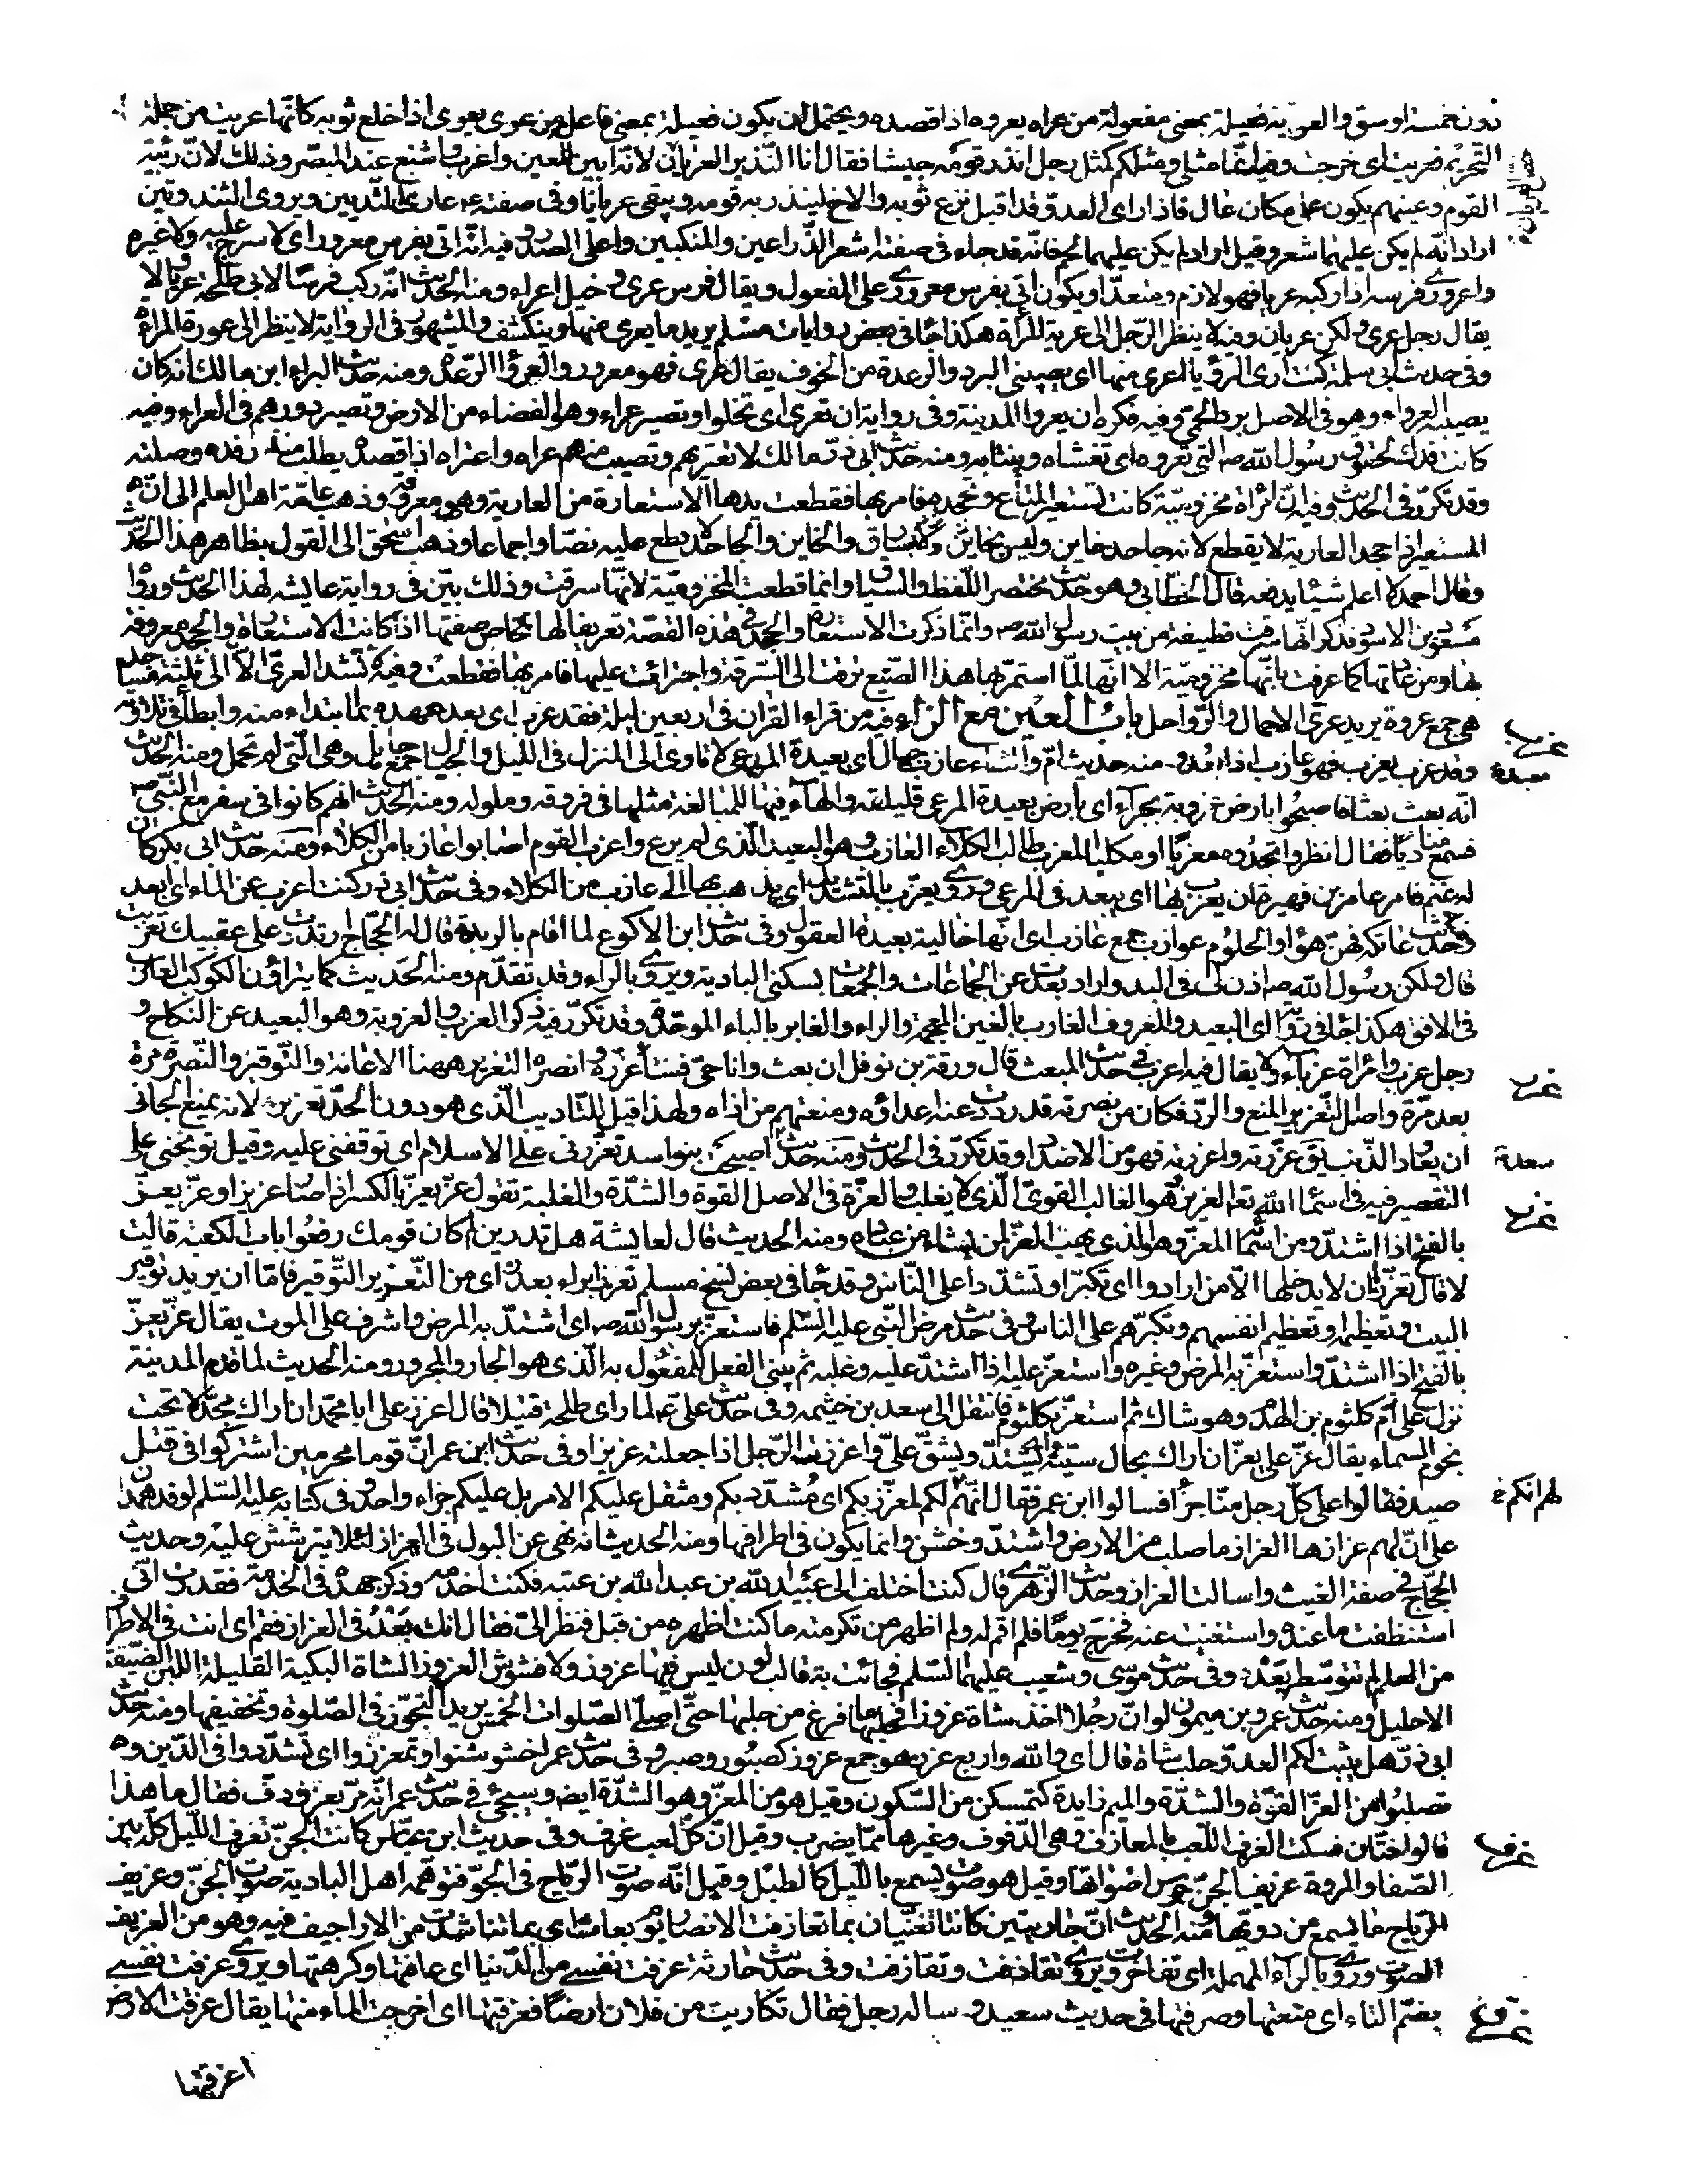 دون خمسة اوسق والعريّة فعيلة بمعنى مفعولة من عراه يعروه اذا قصده ويحتمل ان يكون فعيلة بمعنى فاعلة من عرى يعرى اذا خلع ثوبه كانّها عريت من جملة
التحريم فعريت اى خرجت وفيه انّما مثلى ومثلكم كمثل رجل انذر قومه جيشا فقال انا النّذير العريان لانّه ابين للعين واغرب واشنع عند المبصّر وذلك لانّ ربيئة
القوم وعينهم يكون على مكان عال فاذا راى العدوّ قد اقبل نزع ثوبه والاح لينذر به قومه ويبقى عريانا وفى صفته ع عارى الثّديين ويروى الثندوتين
اراد انّه لم يكن عليهما شعر وقيل اراد لم يكن عليهما لحم فانّه قد جاء فى صفته اشعر الذّراعين والمنكبين واعلى الصّدر وفيه انّه اتى بفرس معرور اى لا سرج عليه ولا غيره
واعرورى فرسه اذا ركبه عريا فهو لازم ومتعدّ او يكون اتى بفرس معرورى على المفعول ويقال فرس عرى وخيل اعراء ومنه الحديث انّه ركب فرسًا لابى طلحة عريا ولا
يقال رجل عرى ولكن عريان وفيه لا ينظر الرّجل الى عرية المرأة هكذا جا فى بعض روايات مسلم يريد ما يعرى منها وينكشف والمشهور فى الرواية لا ينظر الى عورة المراة
وفى حديث ابى سلمة كنت ارى الرؤيا اعرى منها اى يصيبنى البرد والرعدة من الخوف يقال عرى فهو معرور والعرواء الرّعدة ومنه حديث البراء ابن مالك انه كان
يصيبه العرواء وهو فى الاصل برد الحمّى وفيه فكره ان يعروا المدينة وفى رواية ان تعرى اى تخلوا وتصير عراء وهو الفضاء من الارض وتصير دورهم فى العراء وفيه
كانت فدك لحقوق رسول الله ص التى تعروه اى تغشاه وتنتابه ومنه حديث ابى ذرّ مالك لا تعتريهم وتصيب منهم عراه واعتراه اذا قصده يطلب منه رفده وصلته
وقد تكرّر فى الحديث وفيه انّ امراة مخزوميّة كانت تستعير المتاع وتجحده فامر بها فقطعت يدها الاستعارة من العارية وهى معروفة وذهب عامّة اهل العلم الى انّ
المستعير اذا جحد العارية لا يقطع لانه جاحد خاين وليس بخاين ولا سارق والخاين والجاحد لا قطع عليه نصّا واجماعا وذهب اسحق الى القول بظاهر هذا الحديث
وقال احمد لا اعلم شيئا يدفعه قال الخطّابى وهو حديث مختصر اللّفظ والسّياق وانما قطعت المخزوميّة لانّها سرقت وذلك بيّن فى رواية عايشه لهذا الحديث ورواه
مسعود بن الاسود فذكر انّها سرقت قطيفة من بيت رسول الله ص وانّما ذكرت الاستعارة والجحد فى هذه القصّة تعريفا لها بخاص صفتها اذ كانت الاستعارة والجحد معروفة
بها ومن عادتها كما عرفت بانّها مخزوميّة الا انّها لمّا استمرّ بها هذا الصّنيع ترقت الى السّرقة واجترات عليها فامر بها فقطعت وفيه لا تشدّ العرى الّا الى ثلثة مساجد
هى جمع عروة يريد عرى الاحمال والرّواحل باب العين مع الزاء فيه من قراء القران فى اربعين ليلة فقد عزب اى بعد عهده بما ابتداء منه وابطأ فى تلاوته
وقد عزب يعزب فهو عازب اذا بعد ومنه حديث امّ معبد والشاء عازب حيال اى بعيدة المرعى لا تاوى الى المنزل فى اللّيل والحيال جمع حايل وهى الّتى لم تحمل ومنه الحديث
انّه بعث بعثا فاصبحوا بارض عزوبة بجراء اى بارض بعيدة المرعى قليلته والهاء فيها للمبالغة مثلها فى فروقه وملوله ومنه الحديث انهم كانوا فى سفر مع النّبىّ ص
فسمع مناديًا فقال انظروا تجدوه معزبًا او مكليا المعزب طالب الكلاء العازب وهو البعيد الّذى لم يرع واعزب القوم اصابوا عازبا من الكلاء ومنه حديث ابى بكر كان
له غنم فامر عامر بن فهيرة ان يعزب بها اى يبعد فى المرعى وروى يعزّب بالتشديد اى يذهب بها الى عازب من الكلاء وفى حديث ابى ذر كنت اعزب عن الماء اى ابعد
وحديث عاتكه فهنّ هواء والحلوم عوازب جمع عازب اى انّها خالية بعيدة العقول وفى حديث ابن الاكوع لما اقام بالربذة قال له الحجّاج ارتددت على عقبيك تعزّبت
قال لا ولكن رسول الله ص اذن لى فى البدو اراد بعدت عن الجماعات والجمعات بسكنى البادية ويروى بالراء وقد تقدّم ومنه الحديث كما يتراؤن الكوكب العازب
فى الافق هكذا جا فى رواية اى البعيد والمعروف الغارب بالغين المعجمة والراء والغابر بالباء الموحّدة وقد تكرّر فيه ذكر العزب والعزوبة وهو البعيد عن النكاح و
رجل عزب وامراة عزباء ولا يقال فيه اعزب فى حديث المبعث قال ورقة بن نوفل ان بعث وانا حىّ فساعزّره وانصره التعزير ههنا الاعانة والتّوقير والنّصرة مرّة
بعد مرّة واصل التّعزير المنع والردّ فكان من نصرته قد رددت عنه اعداؤه ومنعتهم من اذاه ولهذا قيل للتّاديب الّذى هو دون الحدّ تعزير لانه يمنع الجانى
ان يعاود الذّنب يق عزّرته وعزرته فهو من الاضداد وقد تكرّر فى الحديث ومنه حديث سعد اصبحت بنو اسد تعزّرنى على الاسلام اى توقفنى عليه وقيل توبّخنى على
التقصير فيه فى اسماء الله تعا العزيز هو الغالب القوىّ الّذى لا يغلب والعزّة فى الاصل القوة والشدّة والغلبة تقول عزّ يعزّ بالكسر اذا صار عزيزا وعزّ يعزّ
بالفتح اذا اشتدّ ومن اسمائه المعزّ وهو الذى يهب العزّ لمن يشاء من عباده ومنه الحديث قال لعايشة هل تدرين لم كان قومك رفعوا باب الكعبة قالت
لا قال تعزّزا ان لا يدخلها الّا من ارادوا اى تكبّرا وتشدّدا على النّاس وقد جا فى بعض نسخ مسلم تعزرا براء بعد زاى من التّعزير التّوقير فامّا ان يريد توقير
البيت وتعظيمه او تعظيم انفسهم وتكبّرهم على الناس وفى حديث مرض النّبى عليه السّلم فاستعزّ برسول الله ص اى اشتدّ به المرض واشرف على الموت يقال عزّ يعزّ
بالفتح اذا اشتدّ واستعزّ به المرض وغيره واستعزّ عليه اذا اشتدّ عليه وغلبه ثم يبنى الفعل للمفعول به الّذى هو الجار والمجرور ومنه الحديث لما قدم المدينة
نزل على ام كلثوم بن الهدم وهو شاك ثم استعزّ بكلثوم فانتقل الى سعد بن خيثمه وفى حديث علىّ ع لما راى طلحة قتيلا قال اعزز علىّ ابا محمّد ان اراك مجدّلا تحت
نجوم السماء يقال عزّ علىّ يعزّ ان اراك بحال سيّئة اى يشتدّ ويشقّ علىّ واعززت الرّجل اذا جعلته عزيزا وفى حديث ابن عمر انّ قوما محرمين اشتركوا فى قتل
صيد فقالوا على كلّ رجل منّا جزاء فسالوا ابن عمر فقال لهم انكم لمعزّز بكم اى مشدّد بكم ومثقل عليكم الامر بل عليكم جزاء واحد وفى كتابه عليه السّلم لوفد همدان
على انّ لهم عزازها العزاز ما صلب من الارض واشتدّ وخشن وانما يكون فى اطرافها ومنه الحديث انه نهى عن البول فى العزاز لئلا يترشش عليه وحديث
الحجّاج فى صفة الغيث واسالت العزاز وحديث الزّهرى قال كنت اختلف الى عبيد الله بن عبد الله بن عتبه فكنت اخدمه وذكر جهده فى الخدمة فقدرت انّى
استنظفت ما عنده واستغنيت عنه فخرج يومًا فلم اقم له ولم اظهر من تكرمته ما كنت اظهره من قبل فنظر الىّ فقال انك بعد فى العزاز فقم اى انت فى الاطراف
من العلم لم تتوسّطه بعد وفى حديث موسى وشعيب عليهما السّلم فجائت به قالب لون ليس فيها عزوز ولا فشوش العزوز الشاة البكية القليلة اللبن الضيّقة
الاحليل ومنه حديث عمرو بن ميمون لو انّ رجلا اخذ شاة عزوزا فحلبها ما فرغ من حلبها حتّى اصلّى الصّلوات الخمس يريد التجوّز فى الصّلوة وتخفيفها ومنه حديث
ابى ذرّ هل يثبت لكم العدوّ حلب شاة قال اى والله واربع عزز هو جمع عزوز كصبور وصبر وفى حديث عمر اخشوشنوا وتمعززوا اى تشدّدوا فى الدّين و
تصلبوا من العزّ القوّة والشدّة والميم زايدة كتمسكن من السّكون وقيل هو من المعز وهو الشدّة ايضا وسيجئ فى حديث عمر انّه مرّ بعزف دفّ فقال ما هذا
قالوا ختان فسكت العزف اللّعب بالمعازف وهى الدّفوف وغيرها ممّا يضرب وقيل انّ كلّ لعب عزف وفى حديث ابن عبّاس كانت الجنّ تعزف اللّيل كلّه بين
الصّفا والمروة عزيف الجنّ جرس اصواتها وقيل هو صوت يسمع باللّيل كالطبل وقيل انّه صوت الرّياح فى الجوّ فتوهّمه اهل البادية صوت الجنّ وعزيف
الرّياح ما يسمع من دويّها ومنه الحديث انّ جاريتين كانتا تغنّيان بما تعازفت الانصار يوم بعاث اى بما تناشدت من الاراجيف فيه وهو من العزيف
الصوت وروى بالراء المهملة اى تفاخرت ويروى تقاذفت وتقارفت وفى حديث حارثة عزفت نفسى من الدّنيا اى عافتها وكرهتها ويروى عزفت نفسى
بضمّ التاء اى منعتها وصرفتها فى حديث سعيد وساله رجل فقال تكاريت من فلان ارضًا فعزقتها اى اخرجت الماء منها يقال عزقت الارض
عزب
معبد
عزر
سعد
عزز
لهم انكم
عزف
عزق
اعزقها